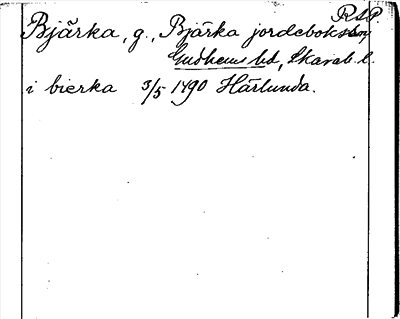 RAP
Bjärka, g., Bjärka jordebokssn
Gudhems hd, Skarab. l.
i bierka 3/5 1490 Härlunda.